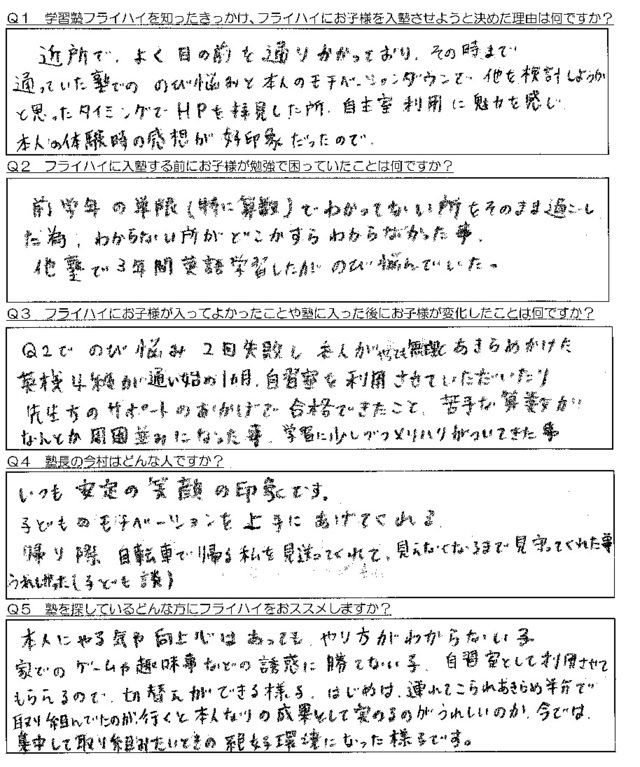 Q1　学習塾フライハイを知ったきっかけ、フライハイにお子様を入塾させようと決めた理由は何ですか？
近所で、よく目の前を通りかかっており、その時まで
通っていた塾での のび悩みと本人のモチベーションダウンで 他を検討しようか
と思ったタイミングでHPを拝見した所、自主室利用に魅力を感じ
本人の体験時の感想が好印象だったので。
Q2　フライハイに入塾する前にお子様が勉強で困っていたことは何ですか？
前学年の単限(特に算数)でわかってない所をそのまま過ごし
た為、わからない所がどこかすらわからなかった事。
他塾で3年間英語学習したがのび悩んでいた。
Q3　フライハイにお子様が入ってよかったことや塾に入った後にお子様が変化したことは何ですか？
Q2でのび悩み 2回失敗し 本人が 無理と あきらめかけた
英検4級が通い始め1カ月、自習室を利用させていただいたり
先生方のサポートのおかげで 合格できたこと、苦手な算数が
なんとか周囲並みになった事、学習に少しづつメリハリがついてきた事
Q4　塾長の今村はどんな人ですか？
いつも安定の笑顔の印象です。
子どものモチベーションを上手にあげてくれる
帰り際 自転車で帰る私を見送ってくれて、見えなくなるまで見守ってくれた事
うれしかった(子ども談)
Q5　塾を探しているどんな方にフライハイをおススメしますか？
本人にやる気や向上心はあっても、やり方がわからない子
家でのゲームや趣味事などの誘惑に勝てない子、自習室として利用させて
もらえるので、切替えができる様子、はじめは、連れてこられあきらめ半分で
取り組んでたのが、行くと本人なりの成果として実のるのがうれしいのか、今では、
集中して取り組みたいときの絶好環境になった様子です。